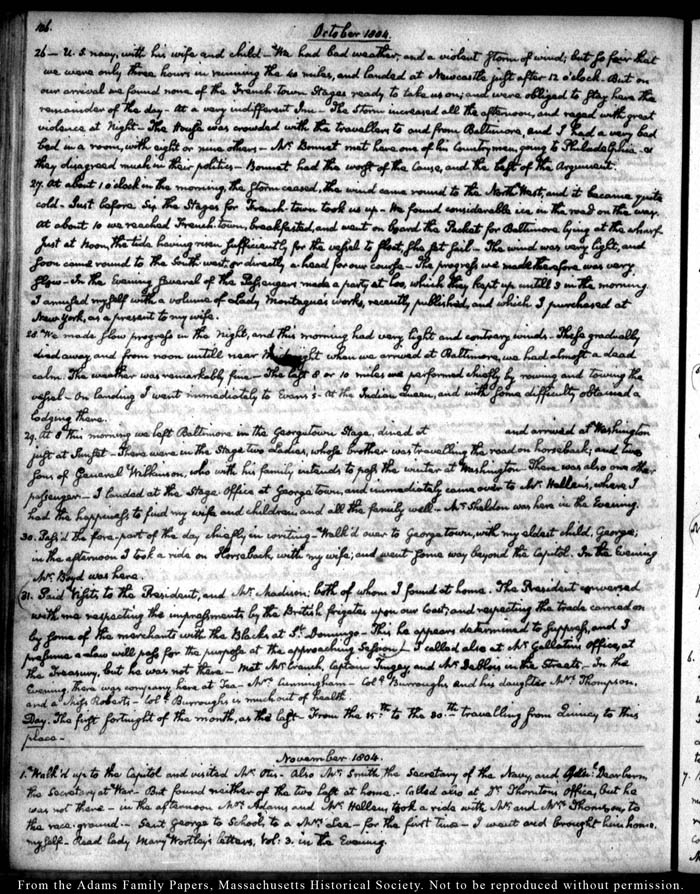 106.
October 1804.
26 - U. S. navy, with his wife and child - We had bad weather, and a violent storm of wind; but so fair that
we were only three hours in running the 40 miles, and landed at Newcastle just after 12 o'clock. But on
our arrival we found none of the French-town Stages ready to take us on; and were obliged to stay here the
remainder of the day - At a very indifferent Inn - The storm increased all the afternoon, and raged with great
violence at Night - The House was crowded with the travellers to and from Baltimore, and I had a very bad
bed in a room, with eight or nine others - Mr. Bonnet met here one of his Countrymen going to Philadelphia - as
they disagreed much in their politics - Bonnet had the worst of the Cause, and the best of the Argument.
27. At about 1 o'clock in the morning, the storm ceased, the wind came round to the North West, and it became quite
cold - Just before Six the Stages for French town took us up - We found considerable ice in the road on the way.
At about 10 we reached French town, breakfasted, and went on board the Packet for Baltimore lying at the wharf.
Just at Noon, the tide having risen sufficiently for the vessel to float, she set sail - The wind was very light, and
soon came round to the South west, or directly a-head for our course - The progress we made therefore was very
slow - In the Evening several of the Passengers made a party at Loo, which they kept up untill 3 in the morning.
I amused myself with a volume of Lady Montague's works, recently published, and which I purchased at
New York, as a present to my wife.
28. We made slow progress in the Night, and this morning had very light and contrary winds. These gradually
died away and from noon untill near Midnight when we arrived at Baltimore, we had almost a dead
calm. The weather was remarkably fine - The last 8 or 10 miles we performed chiefly by rowing and towing the
vessel - On landing I went immediately to Evans's - At the Indian Queen, and with some difficulty obtained a
lodging there.
29. At 8 this morning we left Baltimore in the Georgetown Stage, dined at and arrived at Washington
just at Sunset - There were in the Stage two Ladies, whose brother was travelling the road on horseback, and two
sons of General Wilkinson, who with his family intends to pass the winter at Washington. There was also one other
passenger - I landed at the Stage Office at George town, and immediately came over to Mr. Hellen's, where I
had the happiness to find my wife and children, and all the family well - Mr. Sheldon was here in the Evening.
30. Pass'd the fore-part of the day chiefly in writing - Walk'd over to George town, with my eldest child, George;
in the afternoon I took a ride on Horseback, with my wife; and went some way beyond the Capitol. In the Evening
Mr. Boyd was here.
31. Paid Visits to the President, and Mr. Madison; both of whom I found at home. The President conversed
with me respecting the impressments by the British frigates upon our Coast; and respecting the trade carried on
by some of the merchants with the Blacks at St. Domingo - This he appears determined to suppress, and I
presume a Law will pass for the purpose at the approaching Session - I called also at Mr. Gallatin's Office, at
the Treasury, but he was not there - Met Mr. Cranch, Captain Tingey, and Mr. DeBlois in the Streets. - In the
Evening, there was company here at Tea - Mrs. Cunningham - Coll. Burroughs and his daughter Mrs. Thompson,
and a Miss Roberts - Coll. Burroughs is much out of health
Day. The first fortnight of the month, as the last - From the 15th. to the 30th. travelling from Quincy to this
place -
November 1804.
1. Walk'd up to the Capitol and visited Mr. Otis - Also Mr. Smith the Secretary of the Navy, and Genl. Dearborn
the Secretary at War - But found neither of the two last at home - Called also at Dr. Thornton's Office, but he
was not there - in the afternoon Mrs. Adams and Mrs. Hellen, took a ride with Mr. and Mrs. Thornton, to
the race-ground. - Sent George to School, to a Mrs. Lee - for the first time - I went and brought him home,
myself - Read Lady Mary Wortley's letters, Vol: 3. in the Evening.
From the Adams Family Papers, Massachusetts Historical Society. Not to be reproduced without permission.